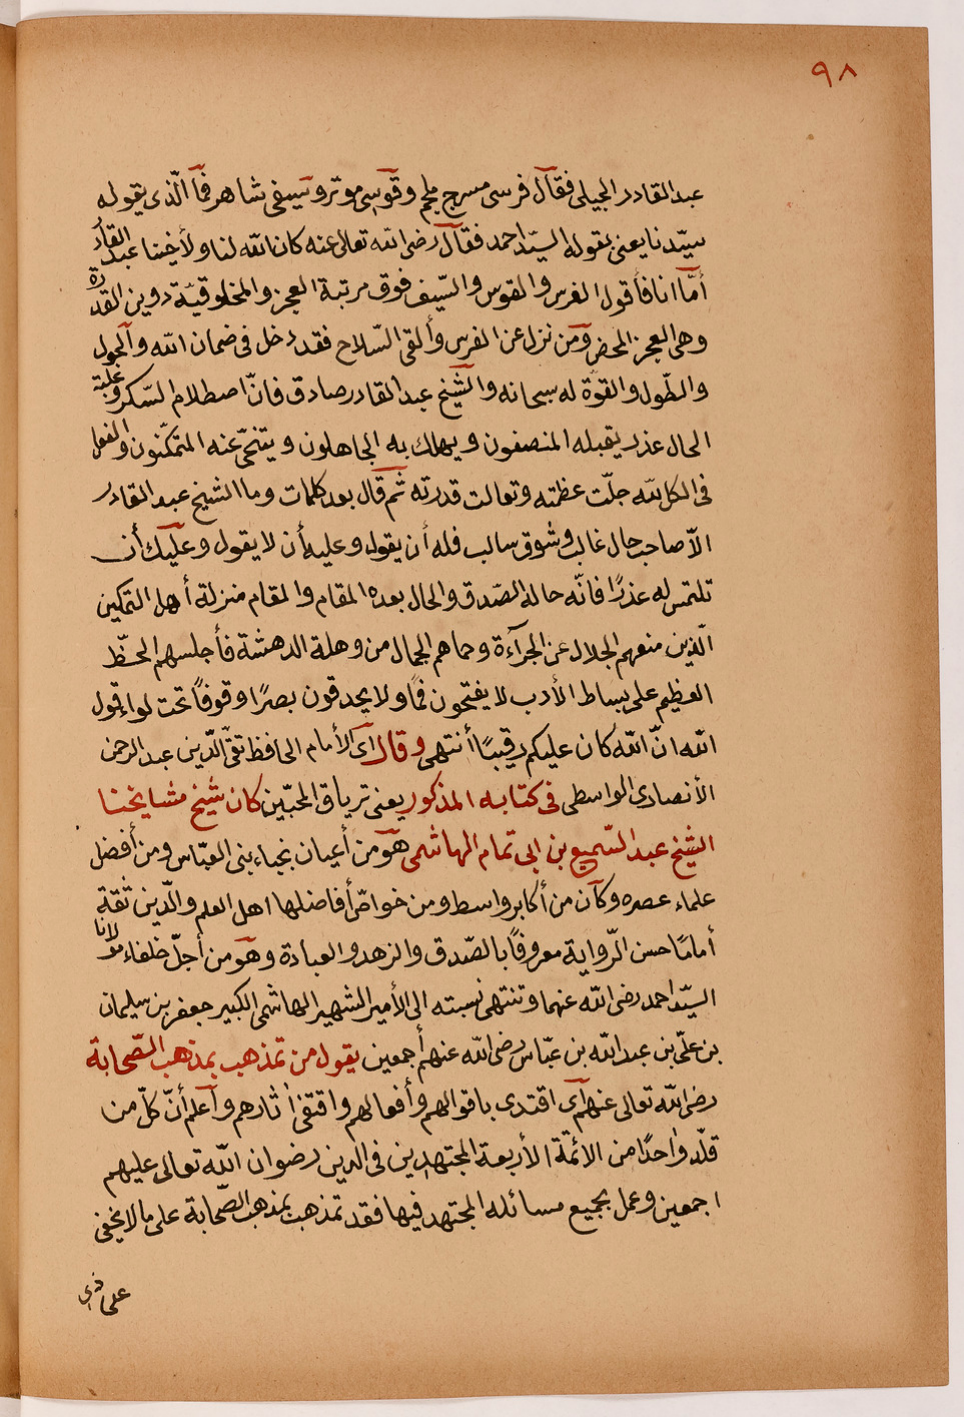 ٩٨
عبد القادر الجيلى فقال فرسى مسرج ملجم وقوسى موتر وسيفى شاهر فما الّذى يقوله
سيّدنا يعنى بقوله السيّد احمد فقال رضى الله تعالى عنه كان الله لنا ولأخينا عبد القادر
أمّا انا فأقول الفرس والقوس والسّيف فوق مرتبة العجز والمخلوقيّة دوين القدرة
وهى العجز المحض ومن نزل عن الفرس وألقى السّلاح فقد دخل فى ضمان الله والحول
والطّول والقوّة له سبحانه والشّيخ عبد القادر صادق فانّ اصطلام السّكر وغلبة
الحال عذر يقبله المنصفون ويهلك به الجاهلون ويتنحّى عنه المتمكّنون والفعل
فى الكل لله جلّت عظمته وتعالت قدرته ثم قال بعد كلمات وما الشيخ عبد القادر
الاّ صاحب حال غالب وشوق سالب فله أن يقول وعليه أن لا يقول وعليك أن
تلتمس له عذرًا فانّه حاله الصّدق والحال بعده المقام والمقام منزلة أهل التمكين
الّذين منعهم الجلال عن الجرآءة وحماهم الجمال من وهلة الدهشة فأجلسهم الحظّ
العظيم على بساط الأدب لا يفتحون فمًا ولا يحدقون بصرًا وقوفًا تحت لواء قول
الله انّ الله كان عليكم رقيبًا أنتهى وقال اى الأمام الحافظ تقىّ الّدين عبد الرحمن
الأنصارى الواسطى فى كتابه المذكور يعنى ترياق المحبّين كان شيخ مشايخنا
الشيخ عبد السّميع بن ابى تمام الهاشمى هو من أعيان نجباء بنى العبّاس ومن أفضل
علماء عصره وكان من أكابر واسط ومن خواصّ أفاضلها اهل العلم والّدين ثقة
أمامًا حسن الّرواية معروفًا بالصّدق والزهد والعبادة وهو من أجلّ خلفاء مولانا
السيّد احمد رضى الله عنهما وتنتهى نسبته الى الأمير الشهير الهاشمى الكبير جعفر بن سليمان
بن علىّ بن عبد الله بن عبّاس رضى الله عنهم أجمعين يقول من تمذهب بمذهب الصّحابة
رضى الله تعالى عنهم اى اقتدى باقوالهم وأفعالهم واقتفى أثارهم وأعلم أنّ كلّ من
قلّد واحدًا من الائمّة الأربعة المجتهدين فى الدين رضوان الله تعالى عليهم
اجمعين وعمل بجميع مسائله المجتهد فيها فقد تمذهب بمذهب الصّحابة على ما لا يخفى
على ذى